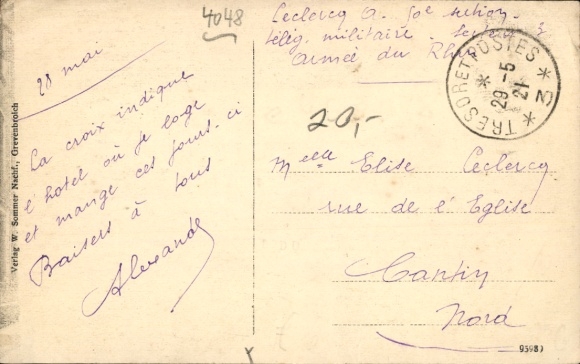 4048
Leclercq A. 50e section
télég. militaire.
Armée du Rhin
TRESOR ET POSTES
29-5
21
* 3 *
20,-
28 mai
La croix indique
l'hotel où je loge
et mange ces jours-ci
Baisers à tous
Alexandre
Melle Elise Leclercq
rue de l'Eglise
Cantin
Nord
Verlag W. Sommer Nachf., Grevenbroich
9598)